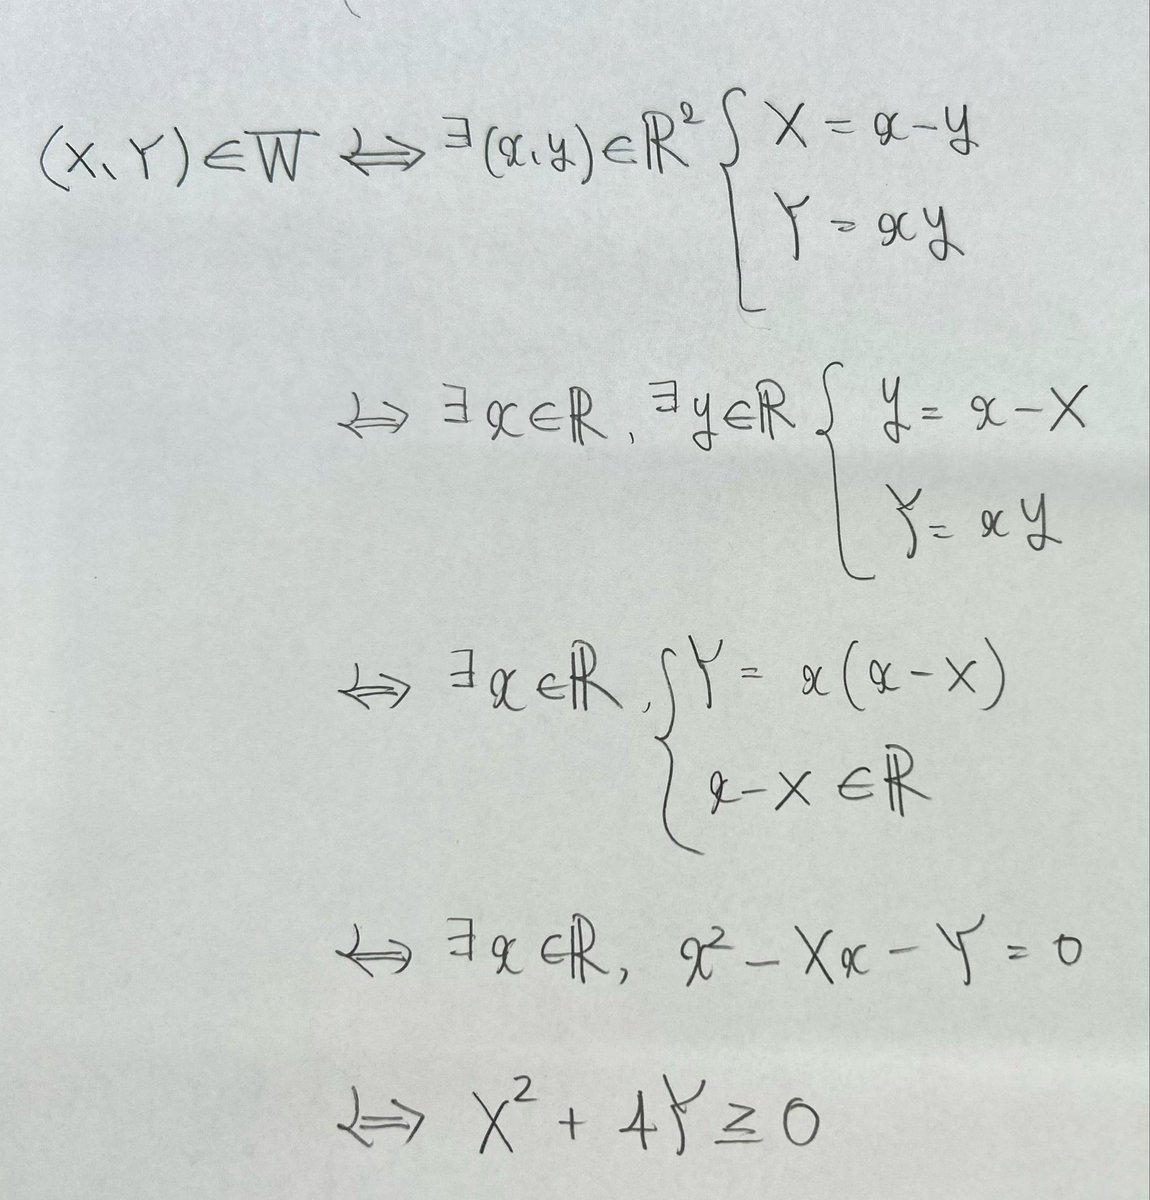 (X, Y) ∈ W ⇔ ∃(x, y) ∈ ℝ² { X = x - y
Y = xy
⇔ ∃x ∈ ℝ, ∃y ∈ ℝ { y = x - X
Y = xy
⇔ ∃x ∈ ℝ, { Y = x(x - X)
x - X ∈ ℝ
⇔ ∃x ∈ ℝ, x² - Xx - Y = 0
⇔ X² + 4Y ≥ 0